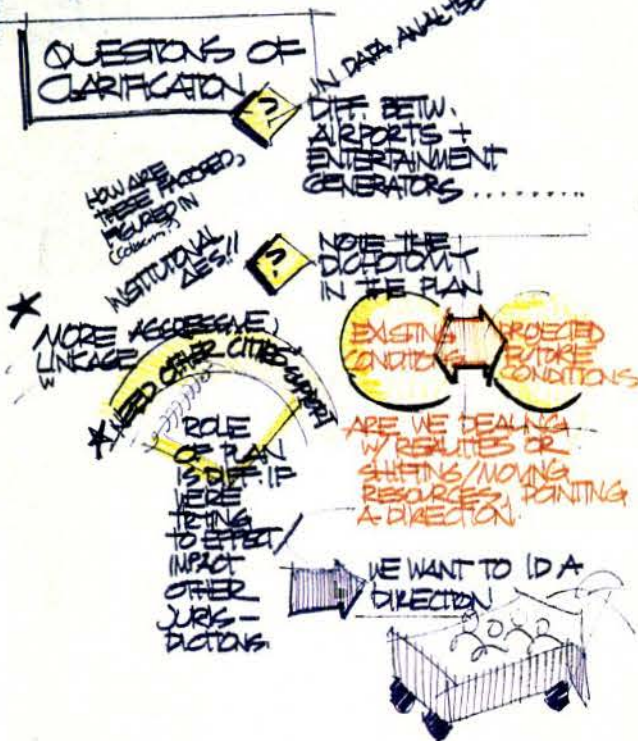 QUESTIONS OF
CLARIFICATION
?
IN DATA ANALYSIS
DIFF. BETW.
AIRPORTS +
ENTERTAINMENT
GENERATORS ........
HOW ARE
THESE FACTORED,
FIGURED IN
INSTITUTIONAL
?
NOTE THE
DICHOTOMY
IN THE PLAN
EXISTING
CONDITIONS
PROJECTED
FUTURE
CONDITIONS
ARE WE DEALING
W/ REALITIES OR
SHIFTING/MOVING
RESOURCES, POINTING
A DIRECTION.
MORE AGGRESSIVE,
LINKAGE
W
NEED OTHER CITIES SUPPORT
ROLE
OF PLAN
IS DIFF. IF
WE'RE
TRYING
TO EFFECT/
IMPACT
OTHER
JURIS-
DICTIONS.
WE WANT TO ID A
DIRECTION